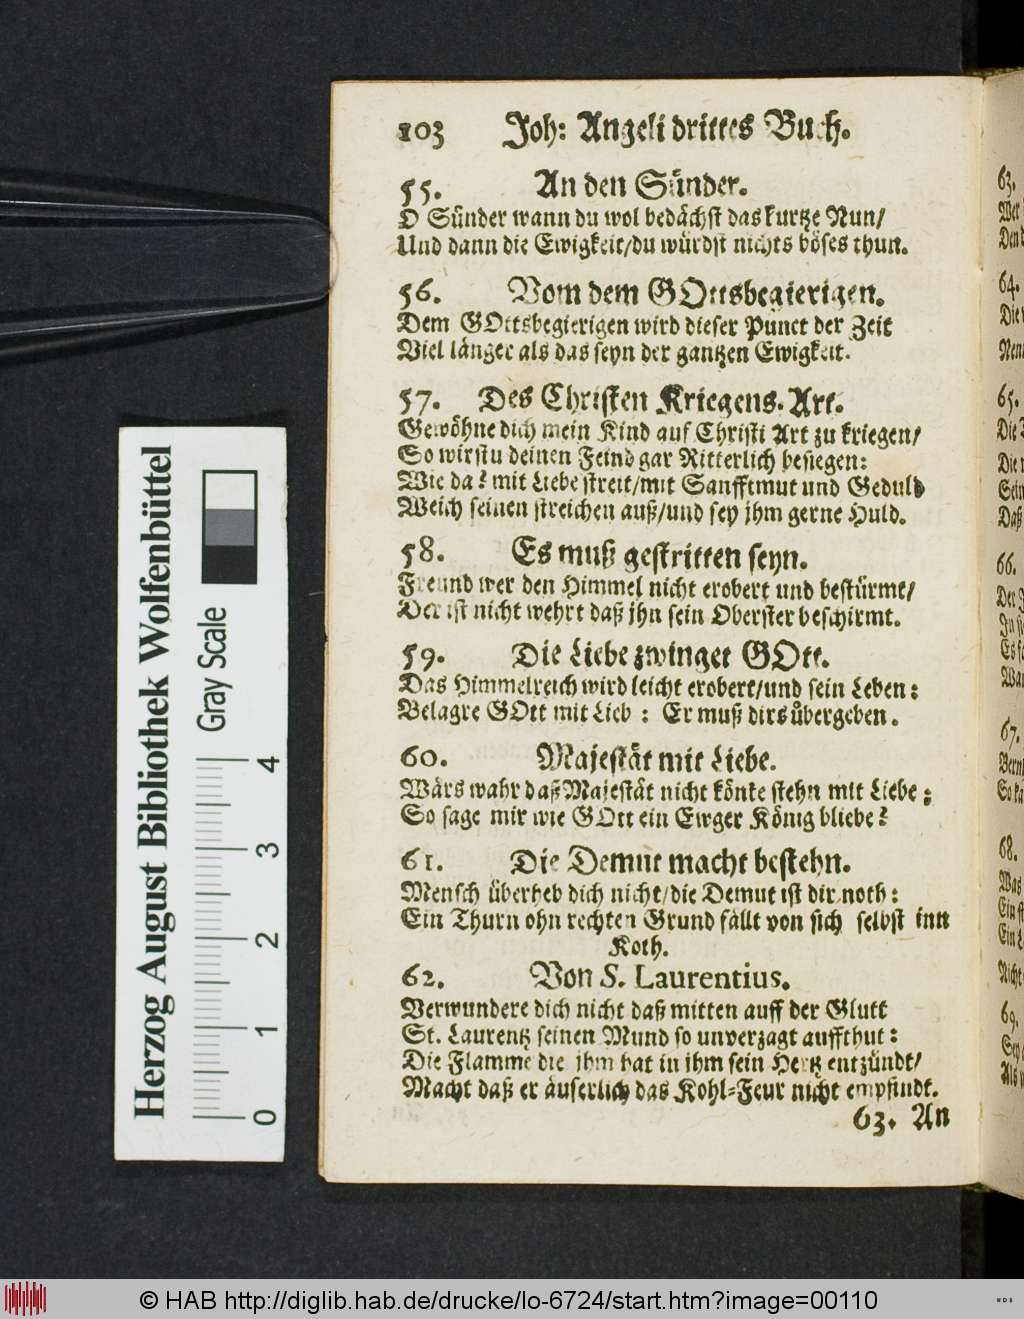 103 Joh: Angeli drittes Buch.
55. An den Sünder.
O Sünder wann du wol bedächst das kurtze Nun/
Und dann die Ewigkeit/du würdst nichts böses thun.
56. Vom dem GOttsbegierigen.
Dem GOttsbegierigen wird dieser Punct der Zeit
Viel länger als das seyn der gantzen Ewigkeit.
57. Des Christen Kriegens-Art.
Gewöhne dich mein Kind auf Christi Art zu kriegen/
So wirstu deinen Feind gar Ritterlich besiegen:
Wie da? mit Liebe streit/mit Sanfftmut und Geduld
Weich seinen streichen auß/und sey jhm gerne Huld.
58. Es muß gestritten seyn.
Freund wer den Himmel nicht erobert und bestürmt/
Der ist nicht wehrt daß jhn sein Oberster beschirmt.
59. Die Liebe zwinget GOtt.
Das Himmelreich wird leicht erobert/und sein Leben:
Belagre GOtt mit Lieb: Er muß dirs übergeben.
60. Majestät mit Liebe.
Wärs wahr daß Majestät nicht könte stehn mit Liebe;
So sage mir wie GOtt ein Ewger König bliebe?
61. Die Demut macht bestehn.
Mensch überheb dich nicht/die Demut ist dir noth:
Ein Thurn ohn rechten Grund fällt von sich selbst inn
Koth.
62. Von S. Laurentius.
Verwundere dich nicht daß mitten auff der Glutt
St. Laurentz seinen Mund so unverzagt auffthut:
Die Flamme die jhm hat in jhm sein Hertz entzündt/
Macht daß er äuserlich das Kohl-Feur nicht empfindt.
63. An
63.
64.
65.
66.
67.
68.
69.
Herzog August Bibliothek Wolfenbüttel
Gray Scale
0 1 2 3 4
© HAB http://diglib.hab.de/drucke/lo-6724/start.htm?image=00110